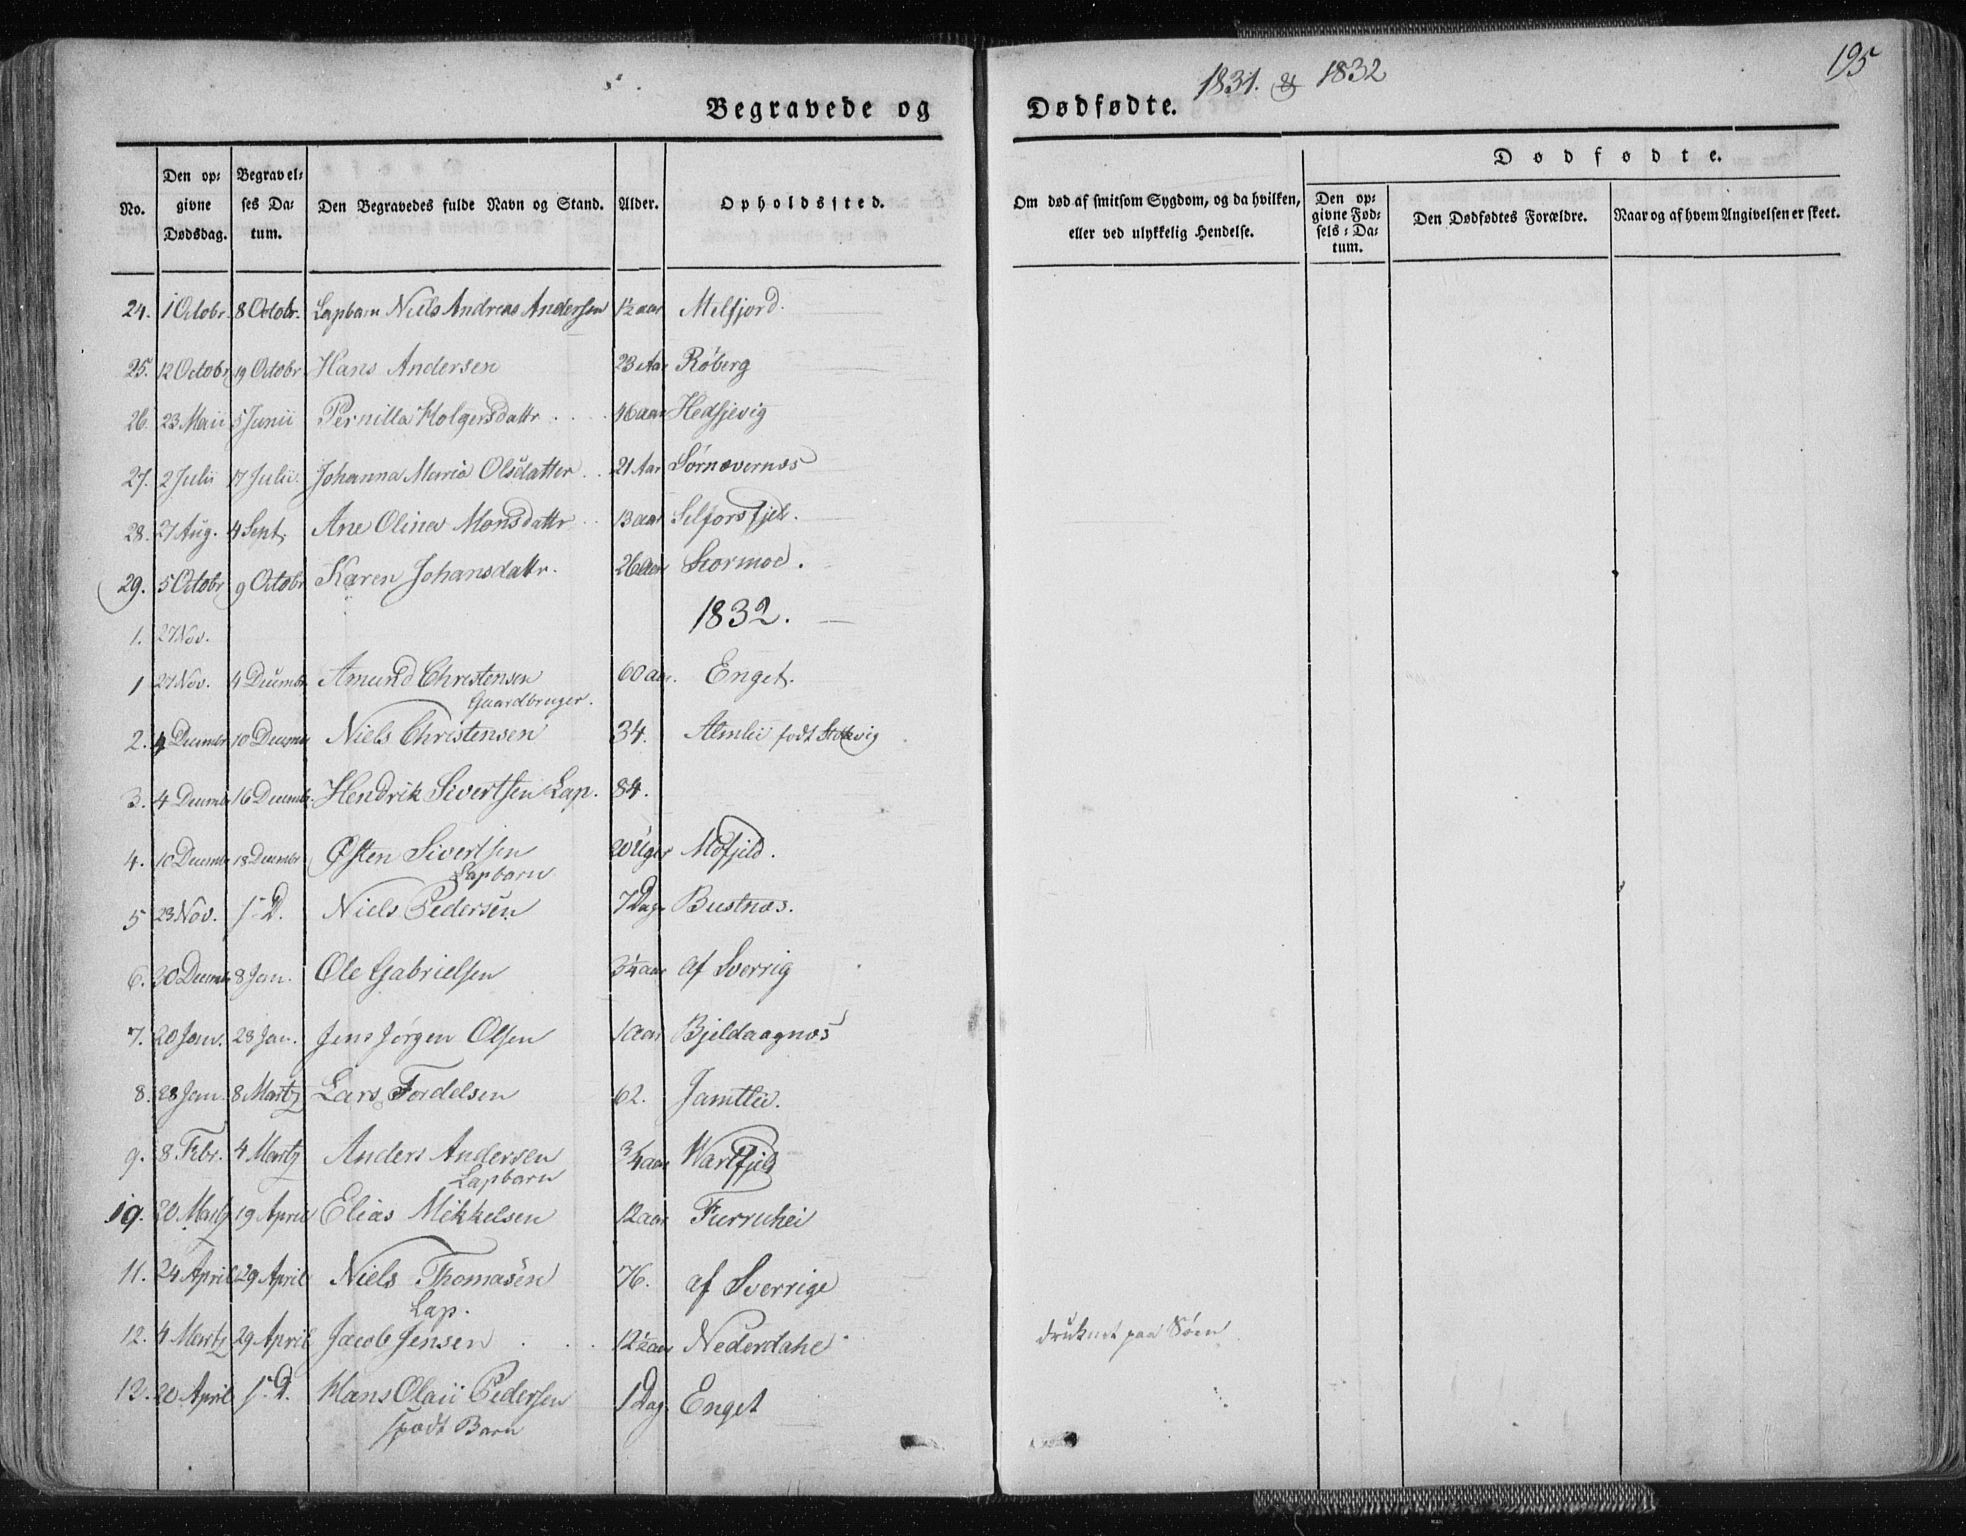 Begravede og
Dødfødte.
1831. & 1832
195
No.
Den op=
givne
Dødsdag.
Begravel=
ses Da=
tum.
Den Begravedes fulde Navn og Stand.
Alder.
Opholdssted.
Om død af smitsom Sygdom, og da hvilken,
eller ved ulykkelig Hendelse.
Dødfødte.
Den op=
givne Fød=
sels=Da=
tum.
Den Dødfødtes Forældre.
Naar og af hvem Angivelsen er skeet.
24. 1 Octobr. 8 Octobr. Lapbarn Niels Andreas Andersen 1½ aar Melfjord.
25. 12 Octobr 19 Octobr Hans Andersen 23 Aar Røberg
26. 23 Maii 5 Junii Pernilla Holgersdattr 46 aar Hedsjevig
27. 2 Julii 17 Julii Johanna Maria Olsdatter 21 Aar Sørnævernæs
28. 27 Aug. 4 Sept. Ane Olina Monsdattr 13 aar Selforsfjeld.
29. 5 Octobr 9 Octobr Karen Johansdattr. 26 aar Stormoe.
1832.
1. 27 Nov.
1 27 Nov. 4 Decembr Amund Christensen 60 aar. Enget.
Gaardbruger.
2. 4 Decembr 10 Decembr Niels Christensen 34. Almlii født Stokvig
3. 4 Decembr 16 Decembr. Hendrik Sivertsen Lap. 84.
4. 10 Decembr 18 Decembr Østen Sivertsen 20 Uger Mofjeld.
Lapbarn
5 23 Nov. s. D. Niels Pedersen 7 Dag. Bustnæs.
6. 20 Decembr 8 Jan. Ole Gabrielsen 3¼ aar af Sverrig
7. 20 Jan. 28 Jan. Jens Jørgen Olsen 1 aar Bjeldaagnæs
8. 28 Jan. 8 Martz Lars Fordelsen 62. Jamtlii.
9. 8 Febr. 4 Martz Anders Andersen ¾ aar Wartfjeld
Lapbarn
10. 20 Martz 19 April Elias Mikkelsen 12 aar Furruhei
11. 24 April 29 April Niels Thomasen 76. af Sverrige
Lap.
12. 4 Martz 29 April Jacob Jensen 12½ aar Nederdahl druknet paa Søen
13. 20 April s. D. Hans Olaii Pedersen 1 Dag Enget
spædt Barn